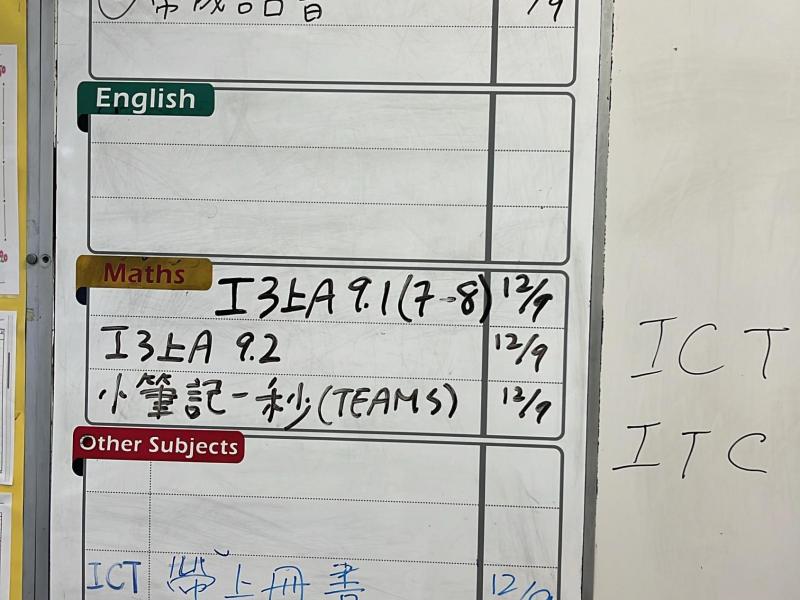 常成語口音
/9
English
Maths
工3上A 9.1(7-8) 12/9
工3上A 9.2 12/9
小筆記一秒(TEAMS) 12/9
Other Subjects
ICT 帶上冊書 12/9
ICT
ITC